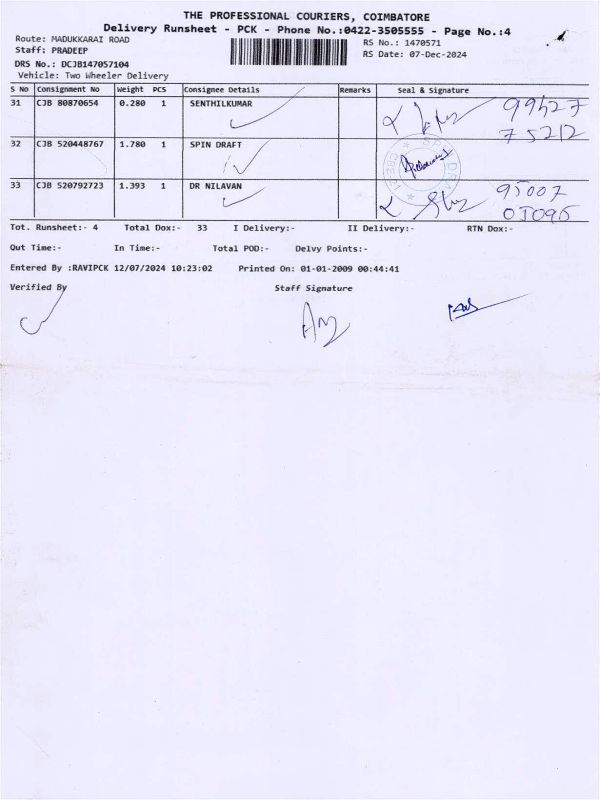 THE PROFESSIONAL COURIERS, COIMBATORE
Delivery Runsheet - PCK - Phone No.:0422-3505555 - Page No.:4
Route: MADUKKARAI ROAD RS No.: 1470571
Staff: PRADEEP RS Date: 07-Dec-2024
DRS No.: DCJB147057104
Vehicle: Two Wheeler Delivery
S No Consignment No Weight PCS Consignee Details Remarks Seal & Signature
31 CJB 80870654 0.280 1 SENTHILKUMAR 99427
75212
32 CJB 520448767 1.780 1 SPIN DRAFT
33 CJB 520792723 1.393 1 DR NILAVAN 95007
05095
Tot. Runsheet:- 4 Total Dox:- 33 I Delivery:- II Delivery:- RTN Dox:-
Out Time:- In Time:- Total POD:- Delvy Points:-
Entered By :RAVIPCK 12/07/2024 10:23:02 Printed On: 01-01-2009 00:44:41
Verified By Staff Signature